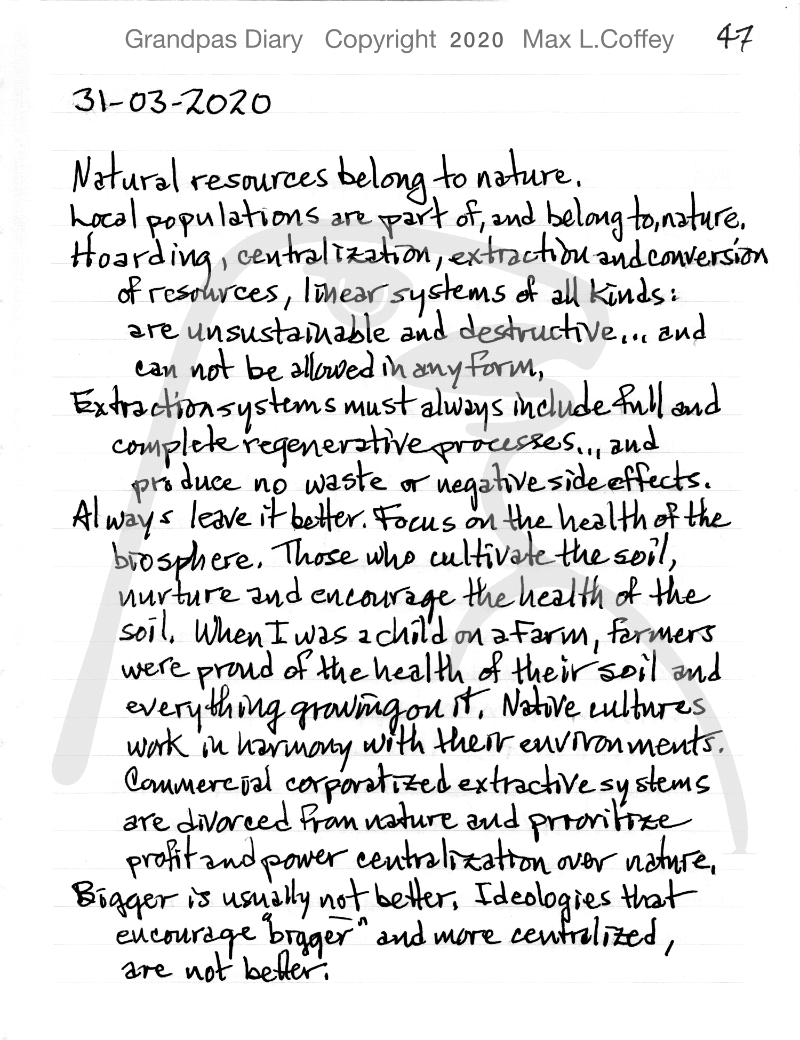 Grandpas Diary Copyright 2020 Max L.Coffey 47
31-03-2020
Natural resources belong to nature.
Local populations are part of, and belong to, nature.
Hoarding, centralization, extraction and conversion
of resources, linear systems of all kinds:
are unsustainable and destructive... and
can not be allowed in any form.
Extraction systems must always include full and
complete regenerative processes... and
produce no waste or negative side effects.
Always leave it better. Focus on the health of the
biosphere. Those who cultivate the soil,
nurture and encourage the health of the
soil. When I was a child on a farm, farmers
were proud of the health of their soil and
everything growing on it. Native cultures
work in harmony with their environments.
Commercial corporatized extractive systems
are divorced from nature and prioritize
profit and power centralization over nature.
Bigger is usually not better. Ideologies that
encourage "bigger" and more centralized,
are not better.